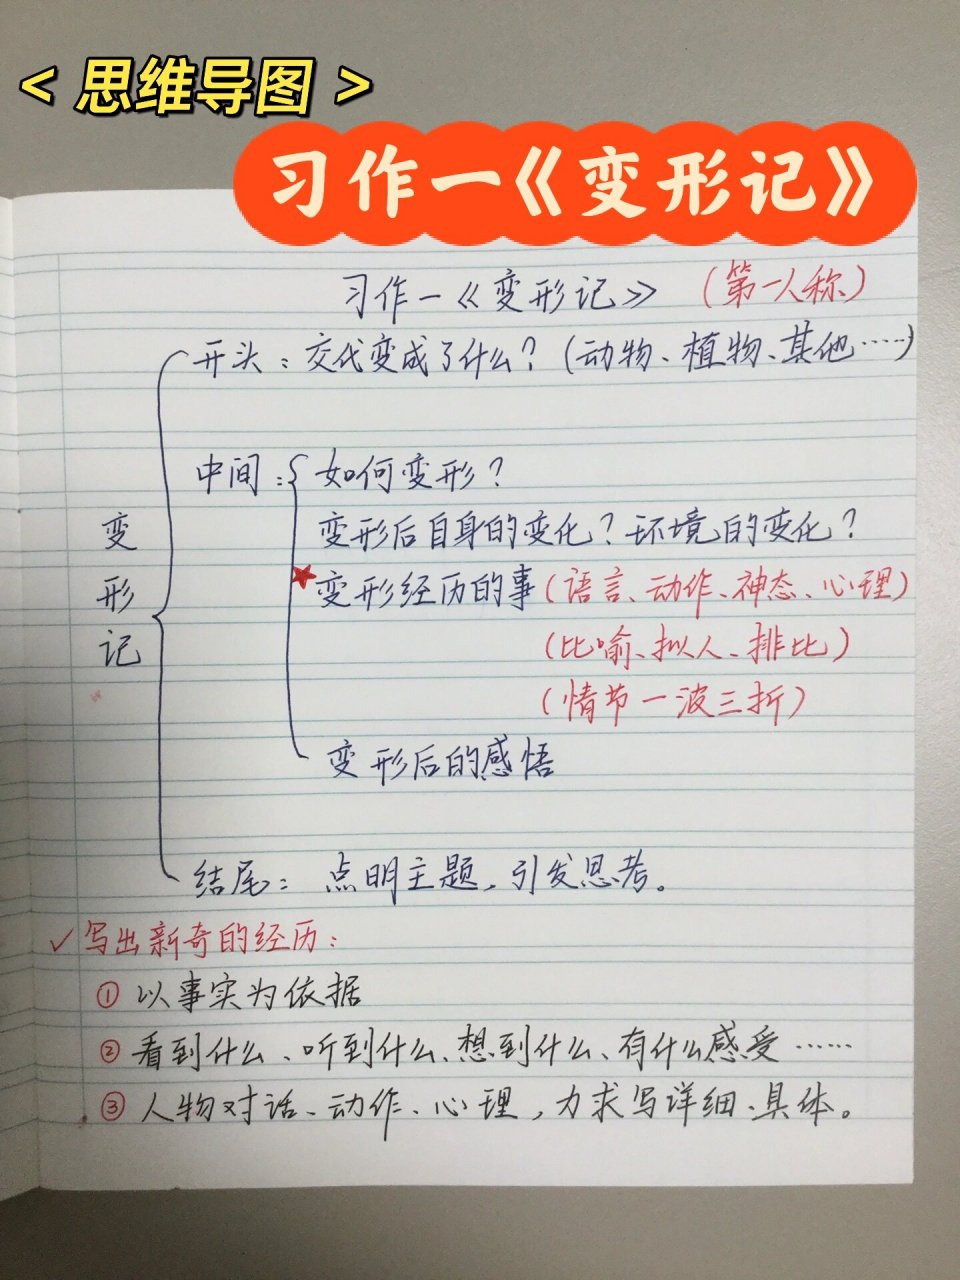 < 思维导图 >
习作一《变形记》
习作一《变形记》 (第一人称)
开头：交代变成了什么？(动物、植物、其他……)
中间：如何变形？
变形后自身的变化？环境的变化？
变形记
★变形经历的事(语言、动作、神态、心理)
(比喻、拟人、排比)
(情节一波三折)
变形后的感悟
结尾：点明主题，引发思考。
✓写出新奇的经历：
①以事实为依据
②看到什么、听到什么、想到什么、有什么感受……
③人物对话、动作、心理，力求写详细、具体。